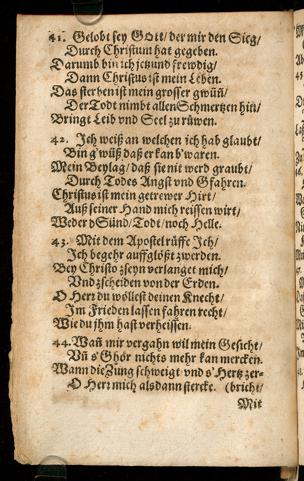 41. Gelobt sey Gott/ der mir den Sieg/
Durch Christum hat gegeben.
Darumb bin ich jetzund frewdig/
Dann Christus ist mein Leben.
Das sterben ist mein grosser gwün̄/
Der Todt nimbt allen Schmertzen hin/
Bringt Leib vnd Seel zu rüwen.
42. Jch weiß an welchen ich hab glaubt/
Bin g'wüß daß er kan b'waren.
Mein Beylag/ daß sie nit werd graubt/
Durch Todes Angst vnd Gfahren.
Christus ist mein getrewer Hirt/
Auß seiner Hand mich reissen wirt/
Weder d'Sünd/ Todt/ noch Helle.
43. Mit dem Apostel rüffe Jch/
Jch begehr auffglößt zwerden.
Bey Christo zseyn verlanget mich/
Vnd zscheiden von der Erden.
O Herr du wöllest deinen Knecht/
Jm Frieden lassen fahren recht/
Wie du jhm hast verheissen.
44. Wañ mir vergahn wil mein Gesicht/
Vñ s'Ghör nichts mehr kan mercken.
Wann die Zung schweigt vnd s'Hertz zer-
O Herr mich alsdann stercke. (bricht/
Mit